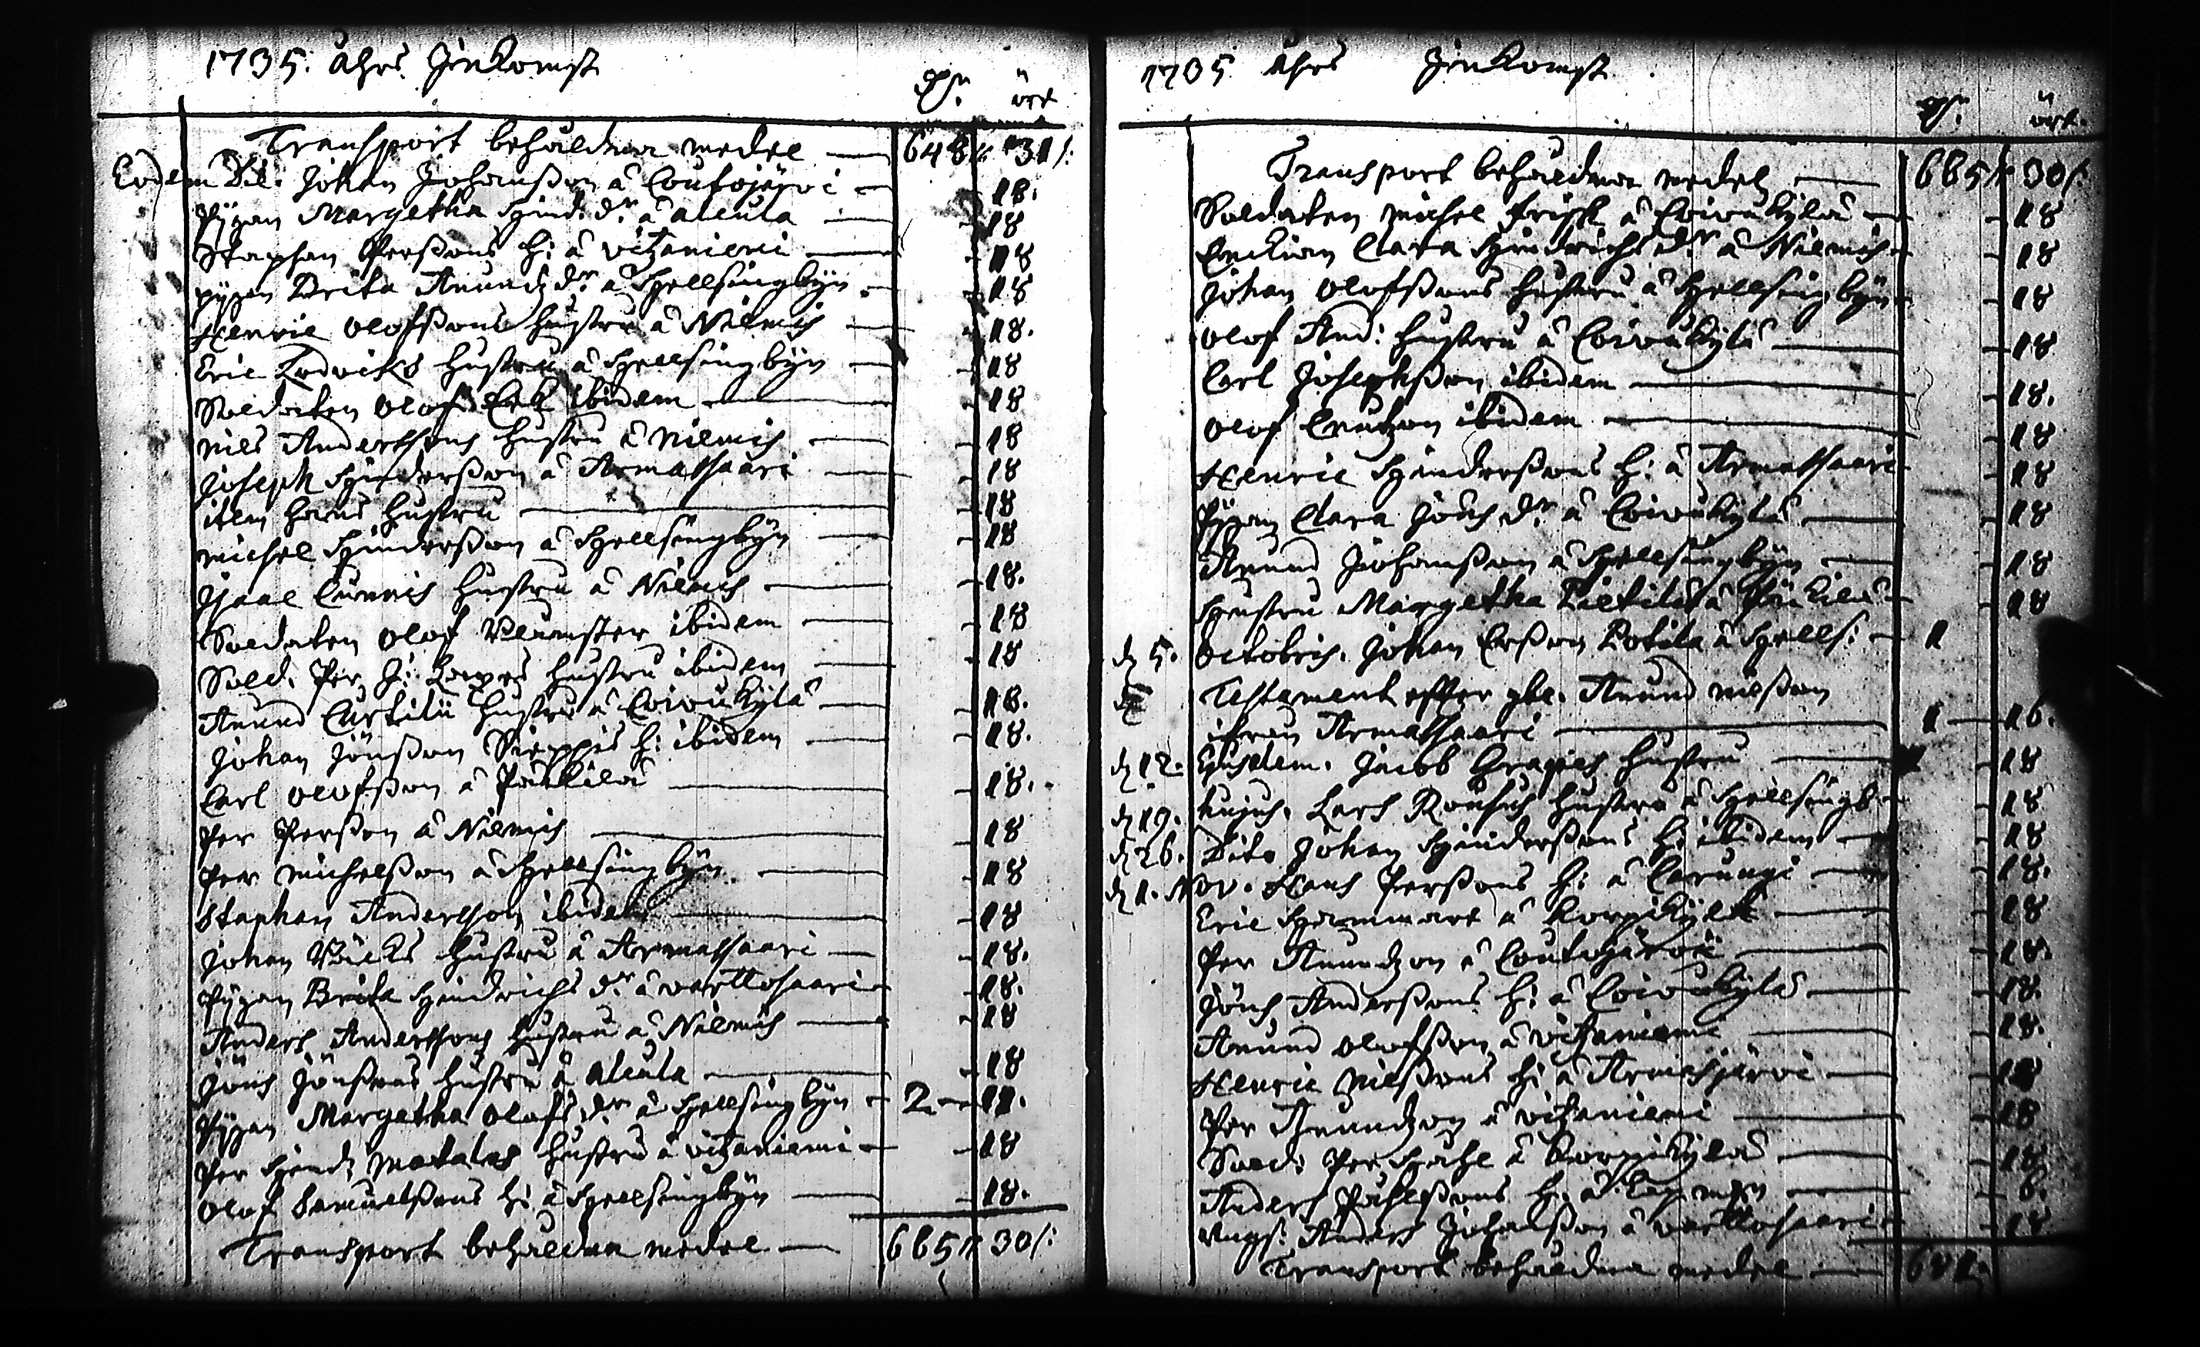 1735. åhrs Jnkomst
dr. ört
Transport behåldna medel — 648 // 31 /:
Eodem Die. Johan Johanßon å Coutojärvi — 18.
Pigan Margetha Hind: dr å alcula — 18
Staphan Perßons h: å vitzaniemi — 18
pigan Brita Anundz dr å Hellsingbÿn — 18
Henric Olofßons hustru å Niemis — 18.
Eric Lodvicks hustru å Hellsingbÿn — 18
Soldaten Olof Eek ibidem — 18
Nils Andersßons hustru å Niemis — 18
Joseph Hindersßon å Armassaari — 18
item hans hustru — 18
Michel Hindersßon å Hellsingbÿn — 18
Isaac Cunnis hustru å Niemis — 18.
Soldaten Olof ibidem — 18
Sold. Per hustru ibidem — 18
Anund Curtilii hustru å Coivukÿlä — 18.
Johan Jönßon h: ibidem — 18.
Carl Olofßon å Päkkilä — 18.
Per Perßon å Niemis — 18
Per Michelßon å Hellsingbÿn — 18
Staphan Andersson ibidem — 18
Johan Wäcks hustru å Armassaari — 18.
Pigan Brita Hindrichs dr å varttosaari — 18.
Anders Anderssons hustru å Niemis — 18
Jöns Jönßons hustru å alcula — 18
Pigan Margetha Olofs dr å Hellsingbÿn — 2 — 11.
Per Hindz hustru å vitzaniemi — 18
Olof Samuelßons h: å Hellsingbÿn — 18.
Transport behåldna medel — 665 // 30 /:
1735 åhrs Jnkomst
dr. ört.
Transport behåldna medel — 665 // 30 /:
Soldaten Michel frisk å Coivukÿlä — 18
Enckian Clara Hindrichs dr å Niemis — 18
Johan Olofßons hustru å Hellsingbÿn — 18
Olof And: hustru å Coivukÿlä — 18
Carl Josephßon ibidem — 18.
Olof Cnutzon ibidem — 18
Henric Hindersßons h: å Armassaari — 18
Pigan Clara Jöns dr å Coivukÿlä — 18
Anund Johanßon å Hellsingbÿn — 18
Hustru Margetha å Päckilä — 18
d. 5. Octobris. Johan Erßon å Hells: — 1
Testament efter Anund Nilßon
ifrån Armassaari — 1 — 16.
d. 12. Ejusdem. Jacob hustru — 18
d. 19. hujus. Lars hustru å Hellsingb — 18
d. 26. Dito Johan Hindersßons h: ibidem — 18
d. 1. Nov. Hans Perßons h: å Carungi — 18.
Eric å Korpikÿlä — 18
Per Anundzon å Coutojärvi — 18.
Jöns Andersßons h: å Coivukÿlä — 18.
Anund Olofßon å vitzaniemi — 18.
Henric Nilßons h: å Armasjärvi — 18
Per Anundzon å vitzaniemi — 18
Sold: Per å Korpikÿlä — 18
Anders Påhlßons h: å — 6.
Anders Johanßon å varttosaari — 18
Transport behåldna medel —